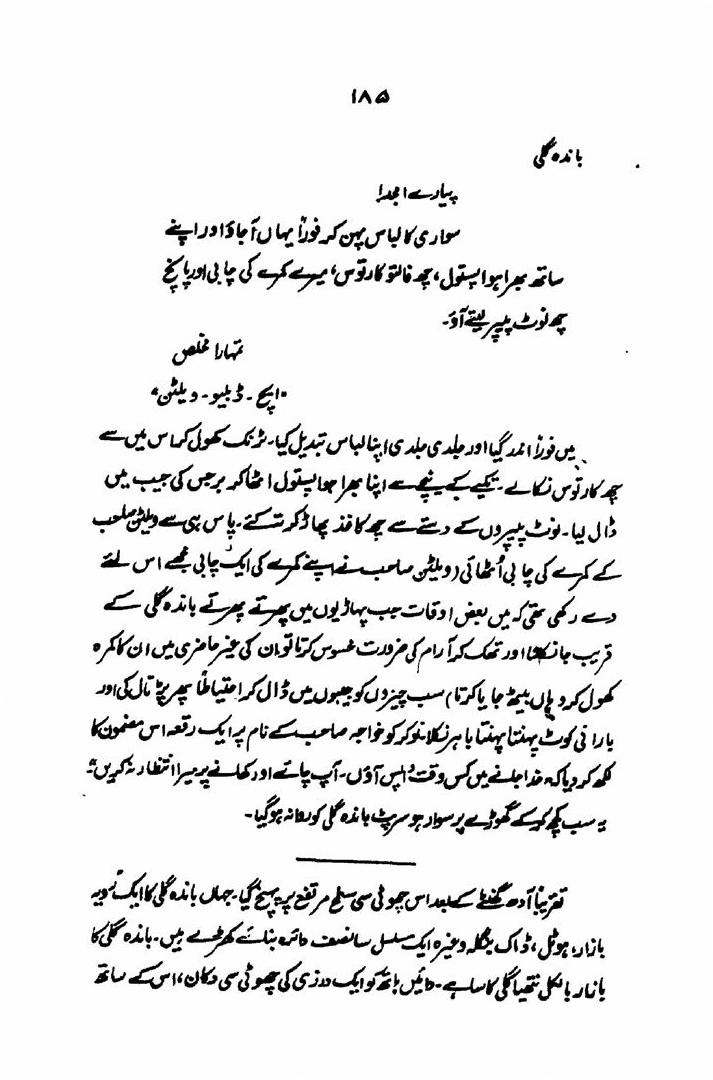 ۱۸۵
باندہ گلی
پیارے امجد!
سواری کا لباس پہن کر فوراً یہاں آ جاؤ اور اپنے
ساتھ بھرا ہوا پستول، چھ فالتو کارتوس، میرے کمرے کی چابی اور پانچ
چھ نوٹ پیپر لیتے آؤ۔
تمہارا مخلص
"ایچ۔ ڈبلیو۔ ویلٹن"
میں فوراً اندر گیا اور جلدی جلدی اپنا لباس تبدیل کیا۔ ٹرنک کھول کر اس میں سے
چھ کارتوس نکالے۔ تکیے کے نیچے سے اپنا بھرا ہوا پستول اٹھا کر برجس کی جیب میں
ڈال لیا۔ نوٹ پیپروں کے دستے سے چھ کاغذ پھاڑ کر تہ کئے۔ پاس ہی سے ویلٹن صاحب
کے کمرے کی چابی اُٹھائی (ویلٹن صاحب نے اپنے کمرے کی ایک چابی مجھے اس لئے
دے رکھی تھی کہ میں بعض اوقات جب پہاڑیوں میں پھرتے پھرتے باندہ گلی کے
قریب جا نکلتا اور تھک کر آرام کی ضرورت محسوس کرتا تو ان کی غیر حاضری میں ان کا کمرہ
کھول کر وہاں بیٹھ جایا کرتا) سب چیزوں کو جیبوں میں ڈال کر احتیاطاً پھر پڑتال کی اور
بارانی کوٹ پہنتا پہنتا باہر نکلا نوکر کو خواجہ صاحب کے نام پر ایک رقعہ اس مضمون کا
لکھ کر دیا کہ خدا جانے میں کس وقت واپس آؤں۔ آپ چائے اور کھانے پر میرا انتظار نہ کریں"
یہ سب کچھ کر کے گھوڑے پر سوار ہو سرپٹ باندہ گلی کو روانہ ہو گیا۔
تقریباً آدھ گھنٹے کے بعد اس چھوٹی سی سطح مرتفع پر پہنچ گیا۔ جہاں باندہ گلی کا ایک رویہ
بازار، ہوٹل، ڈاک بنگلہ وغیرہ ایک مسلسل سا نصف دائرہ بنائے کھڑے ہیں۔ باندہ گلی کا
بازار بالکل نتھیا گلی کا سا ہے۔ دائیں ہاتھ کو ایک درزی کی چھوٹی سی دکان، اس کے ساتھ